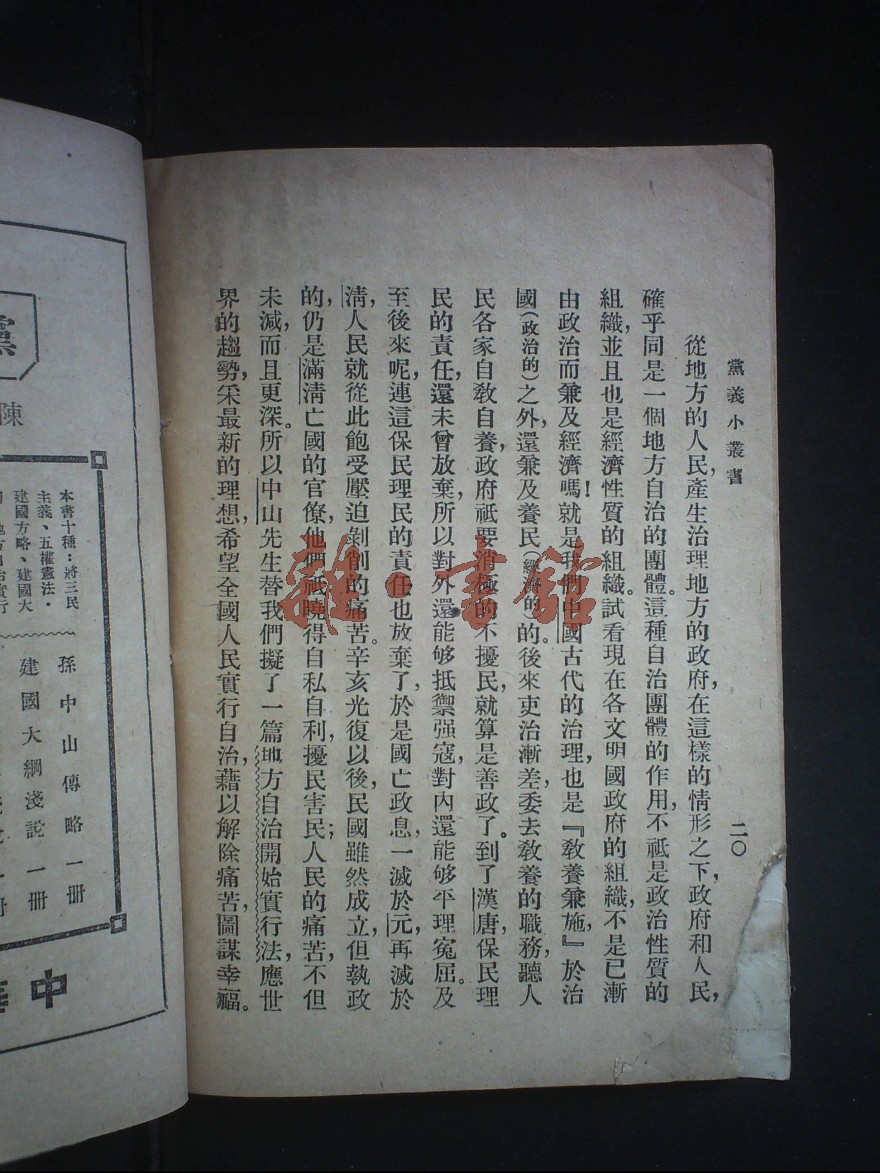 黨義小叢書
二〇
從地方的人民，產生治理地方的政府，在這樣的情形之下，政府和人民，
確乎同是一個地方自治的團體。這種自治團體的作用，不祇是政治性質的
組織，並且也是經濟性質的組織。試看現在各文明國政府的組織，不是已漸
由政治而兼及經濟嗎！就是我們中國古代的治理，也是『敎養兼施』，於治
國（政治的）之外，還兼及養民（經濟的）的。後來吏治漸差，委去敎養的職務，聽人
民各家自敎自養，政府祇要消極的不擾民，就算是善政了。到了漢唐，保民理
民的責任，還未曾放棄，所以對外還能够抵禦强寇，對內還能够平理寃屈。及
至後來呢，連這保民理民的責任也放棄了，於是國亡政息，一滅於元，再滅於
淸，人民就從此飽受壓迫剝削的痛苦。辛亥光復以後，民國雖然成立，但執政
的，仍是滿淸亡國的官僚，他們祇曉得自私自利，擾民害民；人民的痛苦，不但
未減，而且更深。所以中山先生替我們擬了一篇地方自治開始實行法，應世
界的趨勢，采最新的理想，希望全國人民實行自治，藉以解除痛苦，圖謀幸福。
黨
陳
本書十種：將三民
主義、五權憲法、
建國方略、建國大
孫中山傳略 一册
建國大綱淺說 一册
中華
雜·書館